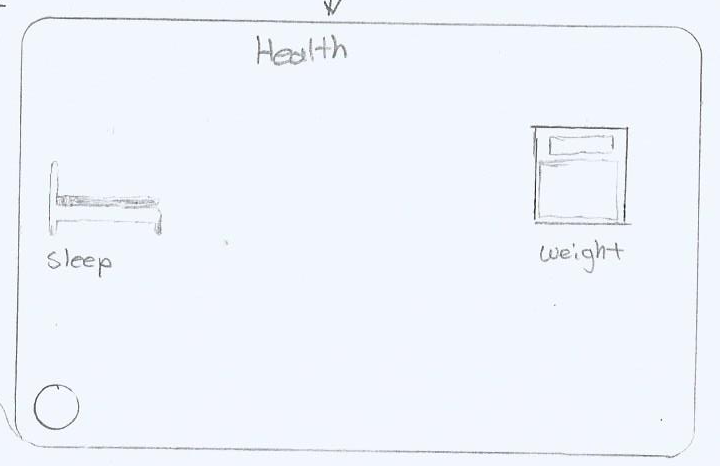 Health
sleep
weight